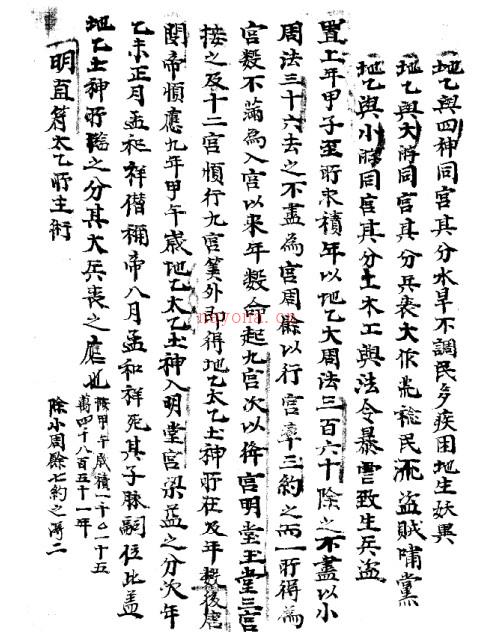 一地乙與四神同宮其分水旱不調民多疾困地生妖異
一地乙與大將同宮其分兵喪大作荒稔民流盜賊嘯黨
一地乙與小將同宮其分土木工與法令暴虐致生兵盜
置上年甲子至所求積年以地乙大周法三百六十除之不盡以小
周法三十六去之不盡為宮周餘以行宮率三約之而一所得為
宮數不滿為入宮以來年數命起九宮次以絳宮明堂玉堂三宮
接之及十二宮順行九宮筭外即得地乙太乙土神所在及年數後唐
閔帝順應九年甲午歲地乙太乙土神入明堂宮梁益之分次年
乙未正月孟祥僣稱帝八月孟和祥死其子昹嗣位此蓋
地乙土神所臨之分其大兵喪之應也
按甲午歲積一千〇一十五
萬四千八百五十一年
除小周餘七約之得二
一明直符太乙所主術
nayona.cn